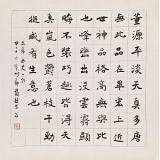 董源平淡天真多唐
無此品在畢宏上近
世神品格高無與比
也峰巒出沒雲霧顯
晦不裝巧趣皆得天
真嵐色鬱蒼枝幹勁
挺咸有生意